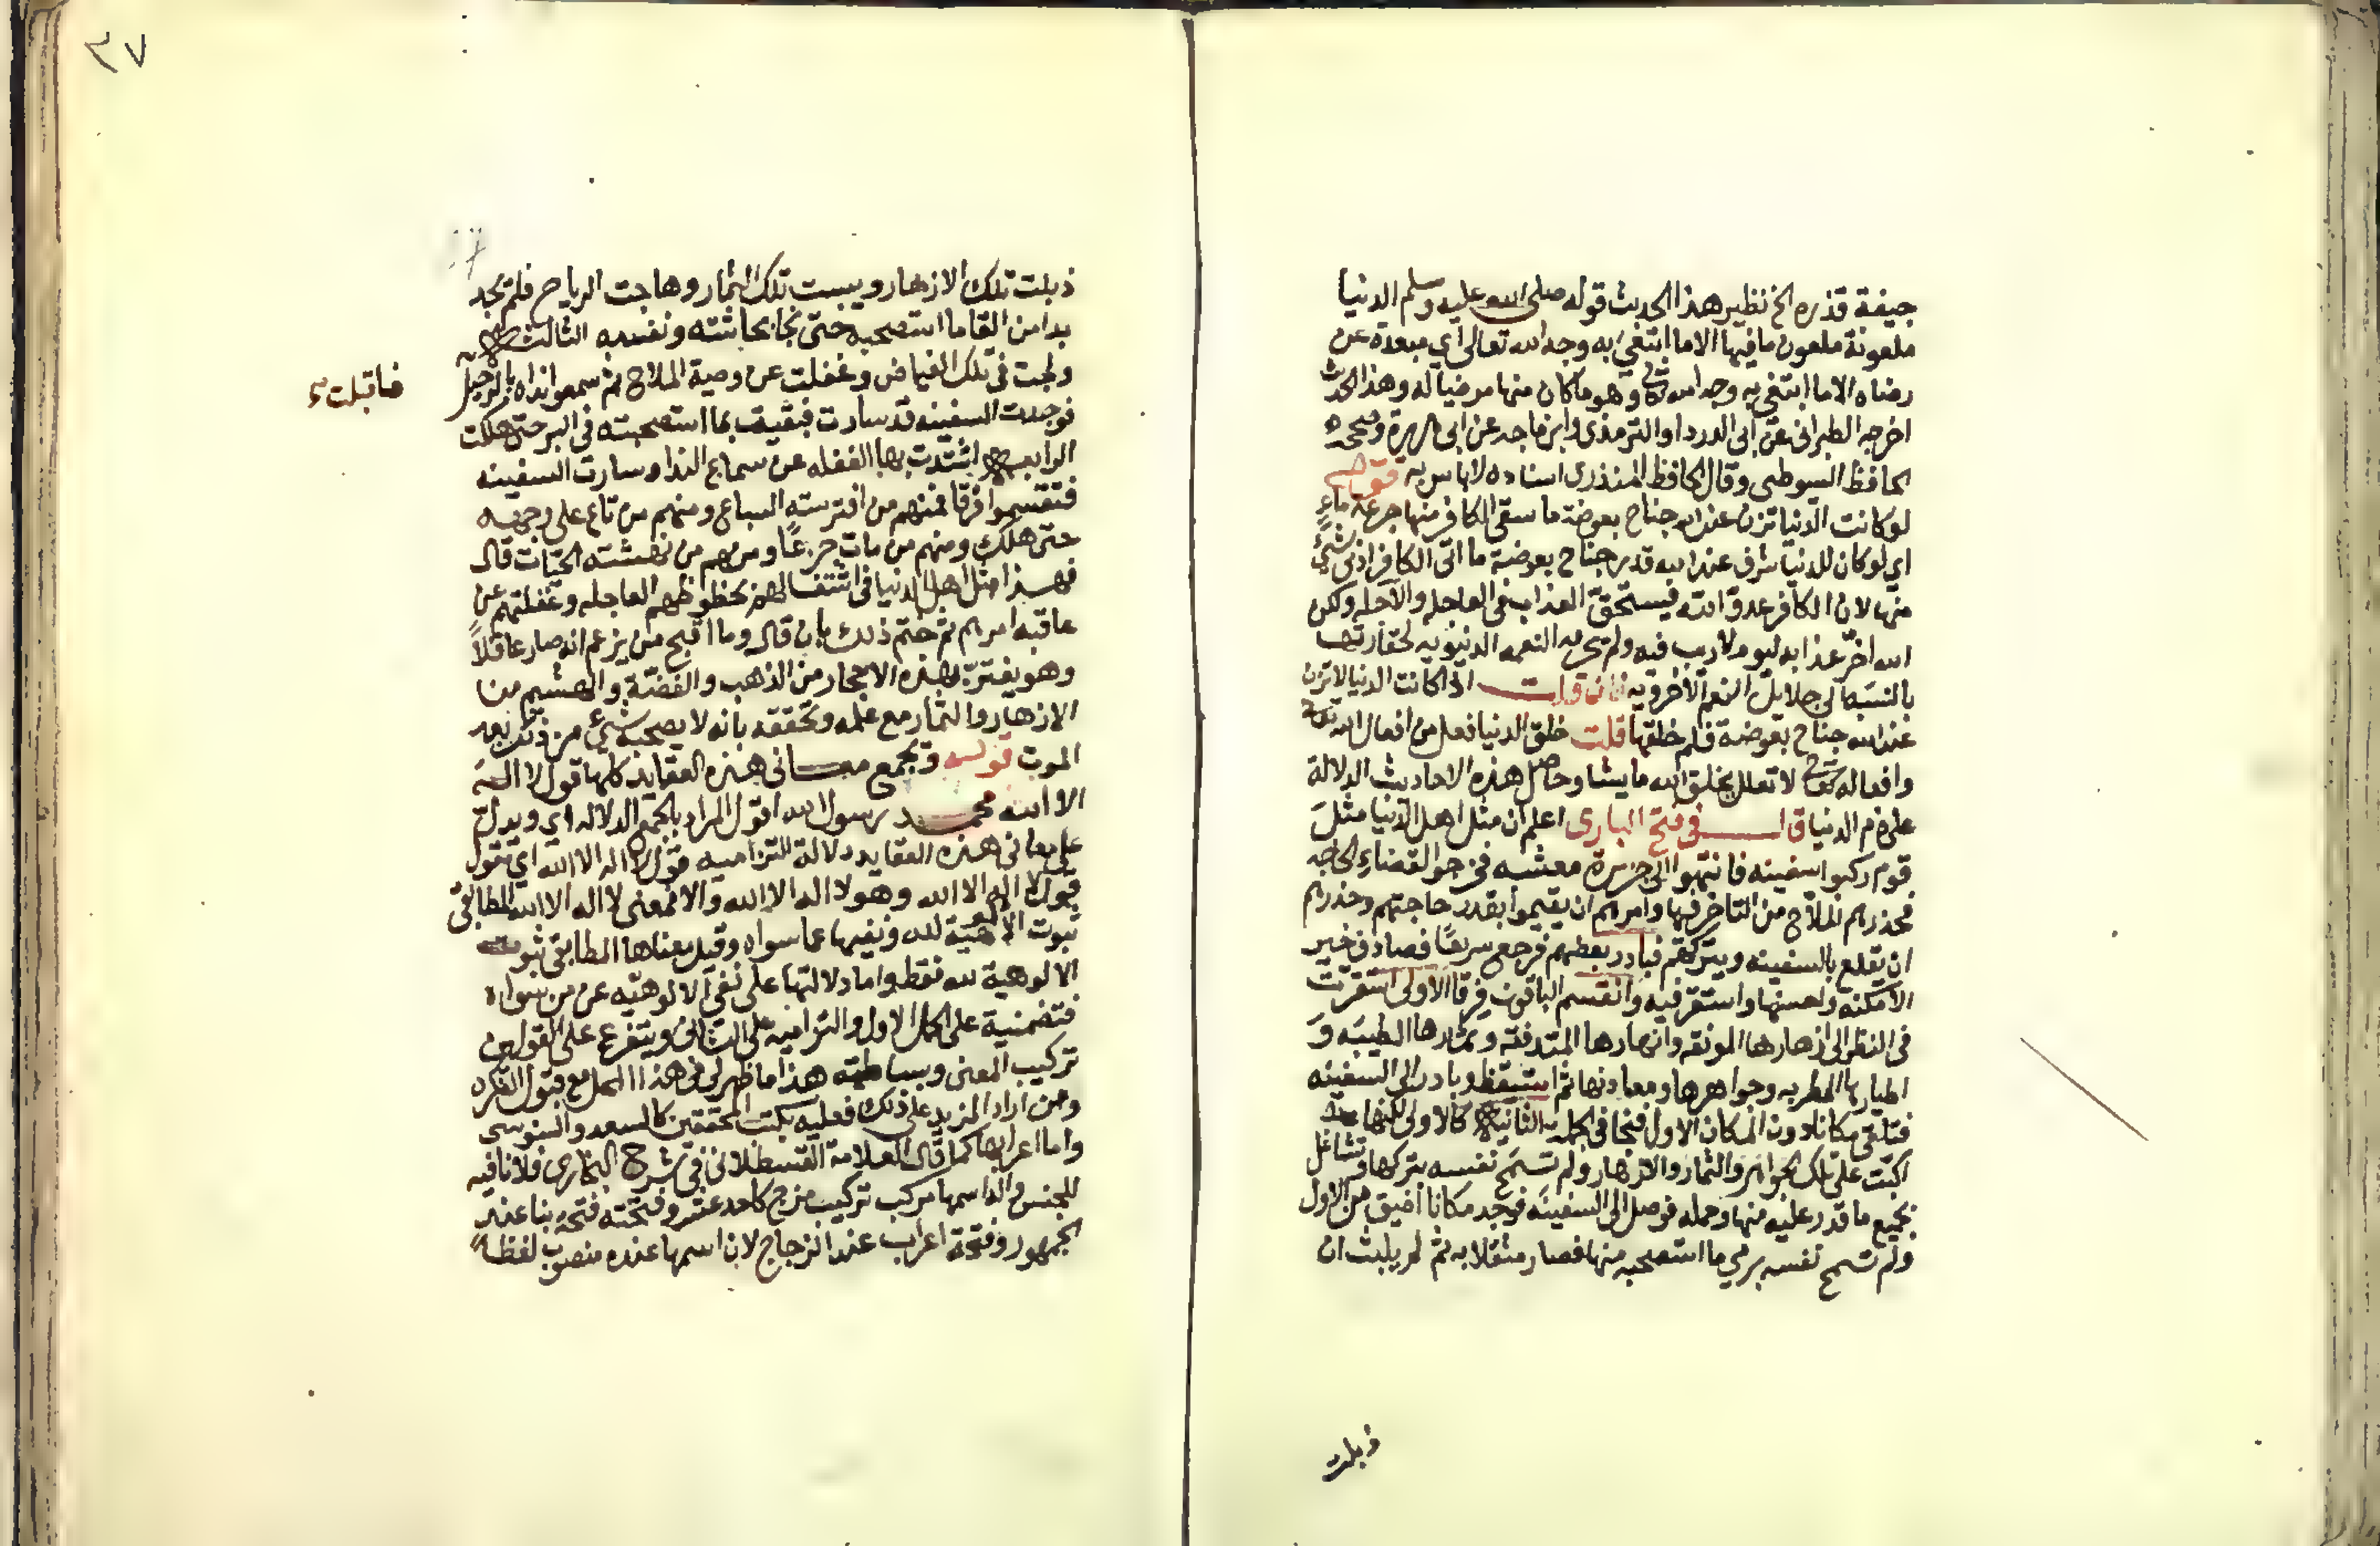 جيفة قذره الخ نظير هذا الحديث قوله صلى الله عليه وسلم الدنيا
ملعونة ملعون ما فيها الا ما ابتغي به وجه الله تعالى اي مبعدة عن
رضاه الا ما ابتغي به وجه الله تعالى وهو ما كان منها مرضيا له وهذا الحديث
اخرجه الطبراني عن ابى الدردا والترمذى وابن ماجه عن ابى هريرة وصححه
الحافظ السيوطى وقال الحافظ المنذرى اسناده لا باس به قوله
لو كانت الدنيا تزن عند الله جناح بعوضة ما سقى الكافر منها جرعة ماء
اي لو كان للدنيا شرف عند الله قدر جناح بعوضة ما اتى الكافر ادنى شيء
منها لان الكافر عدو الله فيستحق العذاب فى العاجله والآجله ولكن
الله اخر عذابه ليوم لا ريب فيه ولم يحرمه النعمه الدنيويه لحقارتها
بالنسبه الى جلايل النعم الاخرويه فان قلت اذا كانت الدنيا لا تزن
عند الله جناح بعوضة فلم خلقها قلت خلق الدنيا فعل من افعال الله تعالى
وافعاله تعالى لا تعلل يخلق الله ما يشا وحاصل هذه الاحاديث الدلالة
على ذم الدنيا قال فى فتح البارى اعلم ان مثل اهل الدنيا مثل
قوم ركبوا سفينه فانتهوا الى جزيرة معشبه فخرجوا لقضاء الحاجه
فحذرهم الملاح من التاخر فيها وامرهم ان يقيموا بقدر حاجتهم وحذرهم
ان يقلع بالسفينه ويتركهم فبادر بعضهم فرجع سريعا فصادف خير
الامكنه واحسنها واستقر فيه وانقسم الباقون فرقا الاولى استغرقت
فى النظر الى ازهارها المونقه وانهارها المتدفقه وثمارها الطيبه و
اطيارها المطربه وجواهرها ومعادنها ثم استيقظ وبادر الى السفينه
فتلقى مكانا دون المكان الاول فنجا فى الجمله الثانيه كالاولى لكنها
اكبت على تلك الجواهر والثمار والازهار ولم تسمح نفسه بتركها وتشاغل
بجميع ما قدر عليه منها وحمله فوصل الى السفينه فوجد مكانا اضيق من الاول
ولم تسمح نفسه برمي ما استصحبه منها فصار مثقلا به ثم لم يلبث ان
ذبلت
٣٧
ذبلت تلك الازهار ويبست تلك الثمار وهاجت الرياح فلم يجد
بدا من القا ما استصحبه حتى نجا بحاشته ونفسه الثالث
ولجت فى تلك الغياض وغفلت عن وصية الملاح ثم سمعوا نداه بالرحيل
فاقبلت
فوجدت السفينه قد سارت فبقيت بما استصحبته فى البر حتى هلكت
الرابعه اشتدت بها الغفله عن سماع الندا وسارت السفينه
فتقسموا فرقا فمنهم من افترسته السباع ومنهم من تاع على وجهه
حتى هلك ومنهم من مات جوعا ومنهم من نهشته الحيات قال
فهذا مثل اهل الدنيا فى اشتغالهم بحظوظهم العاجله وغفلتهم عن
عاقبه امرهم ثم ختم ذلك بان قال وما اقبح من يزعم انه صار عاقلاً
وهو يغتر بهذه الاحجار من الذهب والفضة والهشيم من
الازهار والثمار مع علمه وتحققه بانه لا يصحبه شيء من ذلك بعد
الموت قوله ويجمع معانى هذه العقايد كلها قول لا اله
الا الله محمد رسول الله اقول المراد بالجمع الدلاله اي ويدل
على معانى هذه العقايد دلالة التزاميه قول لا اله الا الله اي
قول لا اله الا الله وهو لا اله الا الله والا فمعنى لا اله الا الله المطابقى
ثبوت الالوهية لله ونفيها عما سواه وقيل معناها المطابقى ثبوت
الالوهية لله فقط واما دلالتها على نفى الالوهيه عن من سواه
فتضمنية على الاول والتزاميه على الثانى ويتفرع على القولين
تركيب المعنى وبساطته هذا ما ظهر لى فى هذا المحل مع قبول الفكره
ومن اراد المزيد على ذلك فعليه بكتب المحققين كالسعد والسنوسى
واما اعرابها كما قال العلامة القسطلانى فى شرح البخارى فلا نافيه
للجنس والله اسمها مركب تركيب مزج كاحد عشر وفتحته فتحة بنا عند
الجمهور وفتحة اعراب عند الزجاج لان اسمها عنده منصوب لفظاً